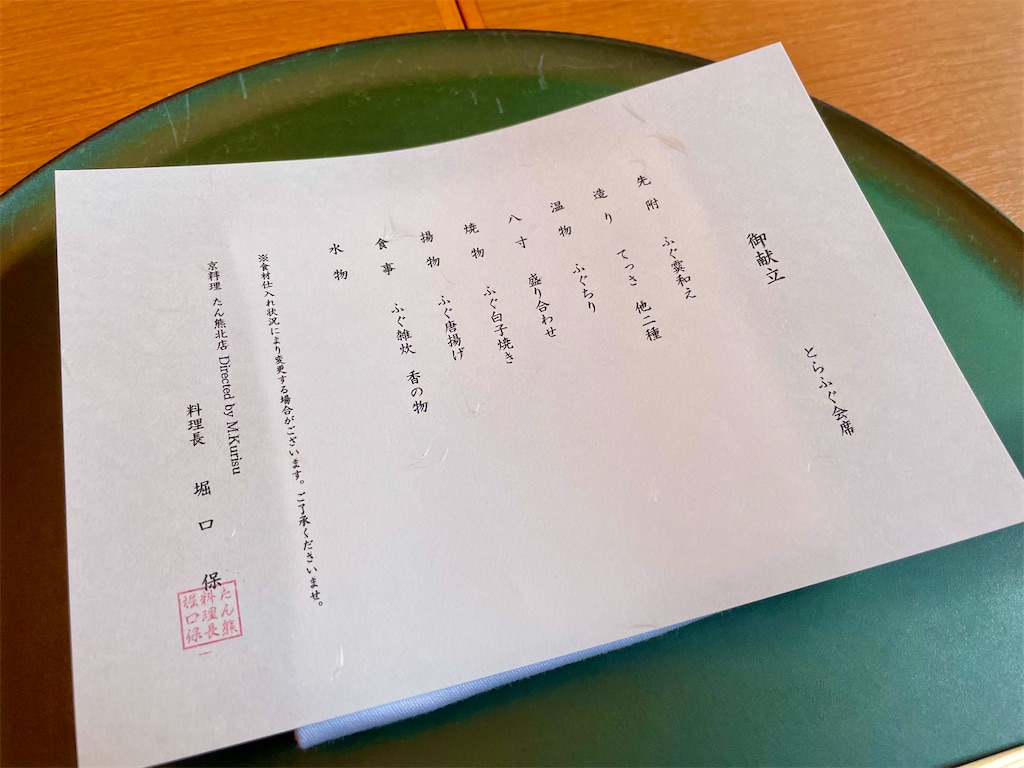 御献立
とらふぐ会席
先附
ふぐ霙和え
造り
てっさ 他二種
温物
ふぐちり
八寸
盛り合わせ
焼物
ふぐ白子焼き
揚物
ふぐ唐揚げ
食事
ふぐ雑炊 香の物
水物
※食材仕入れ状況により変更する場合がございます。ご了承くださいませ。
京料理 たん熊北店 Directed by M.Kurisu
料理長 堀口 保
たん熊
料理長
堀口保